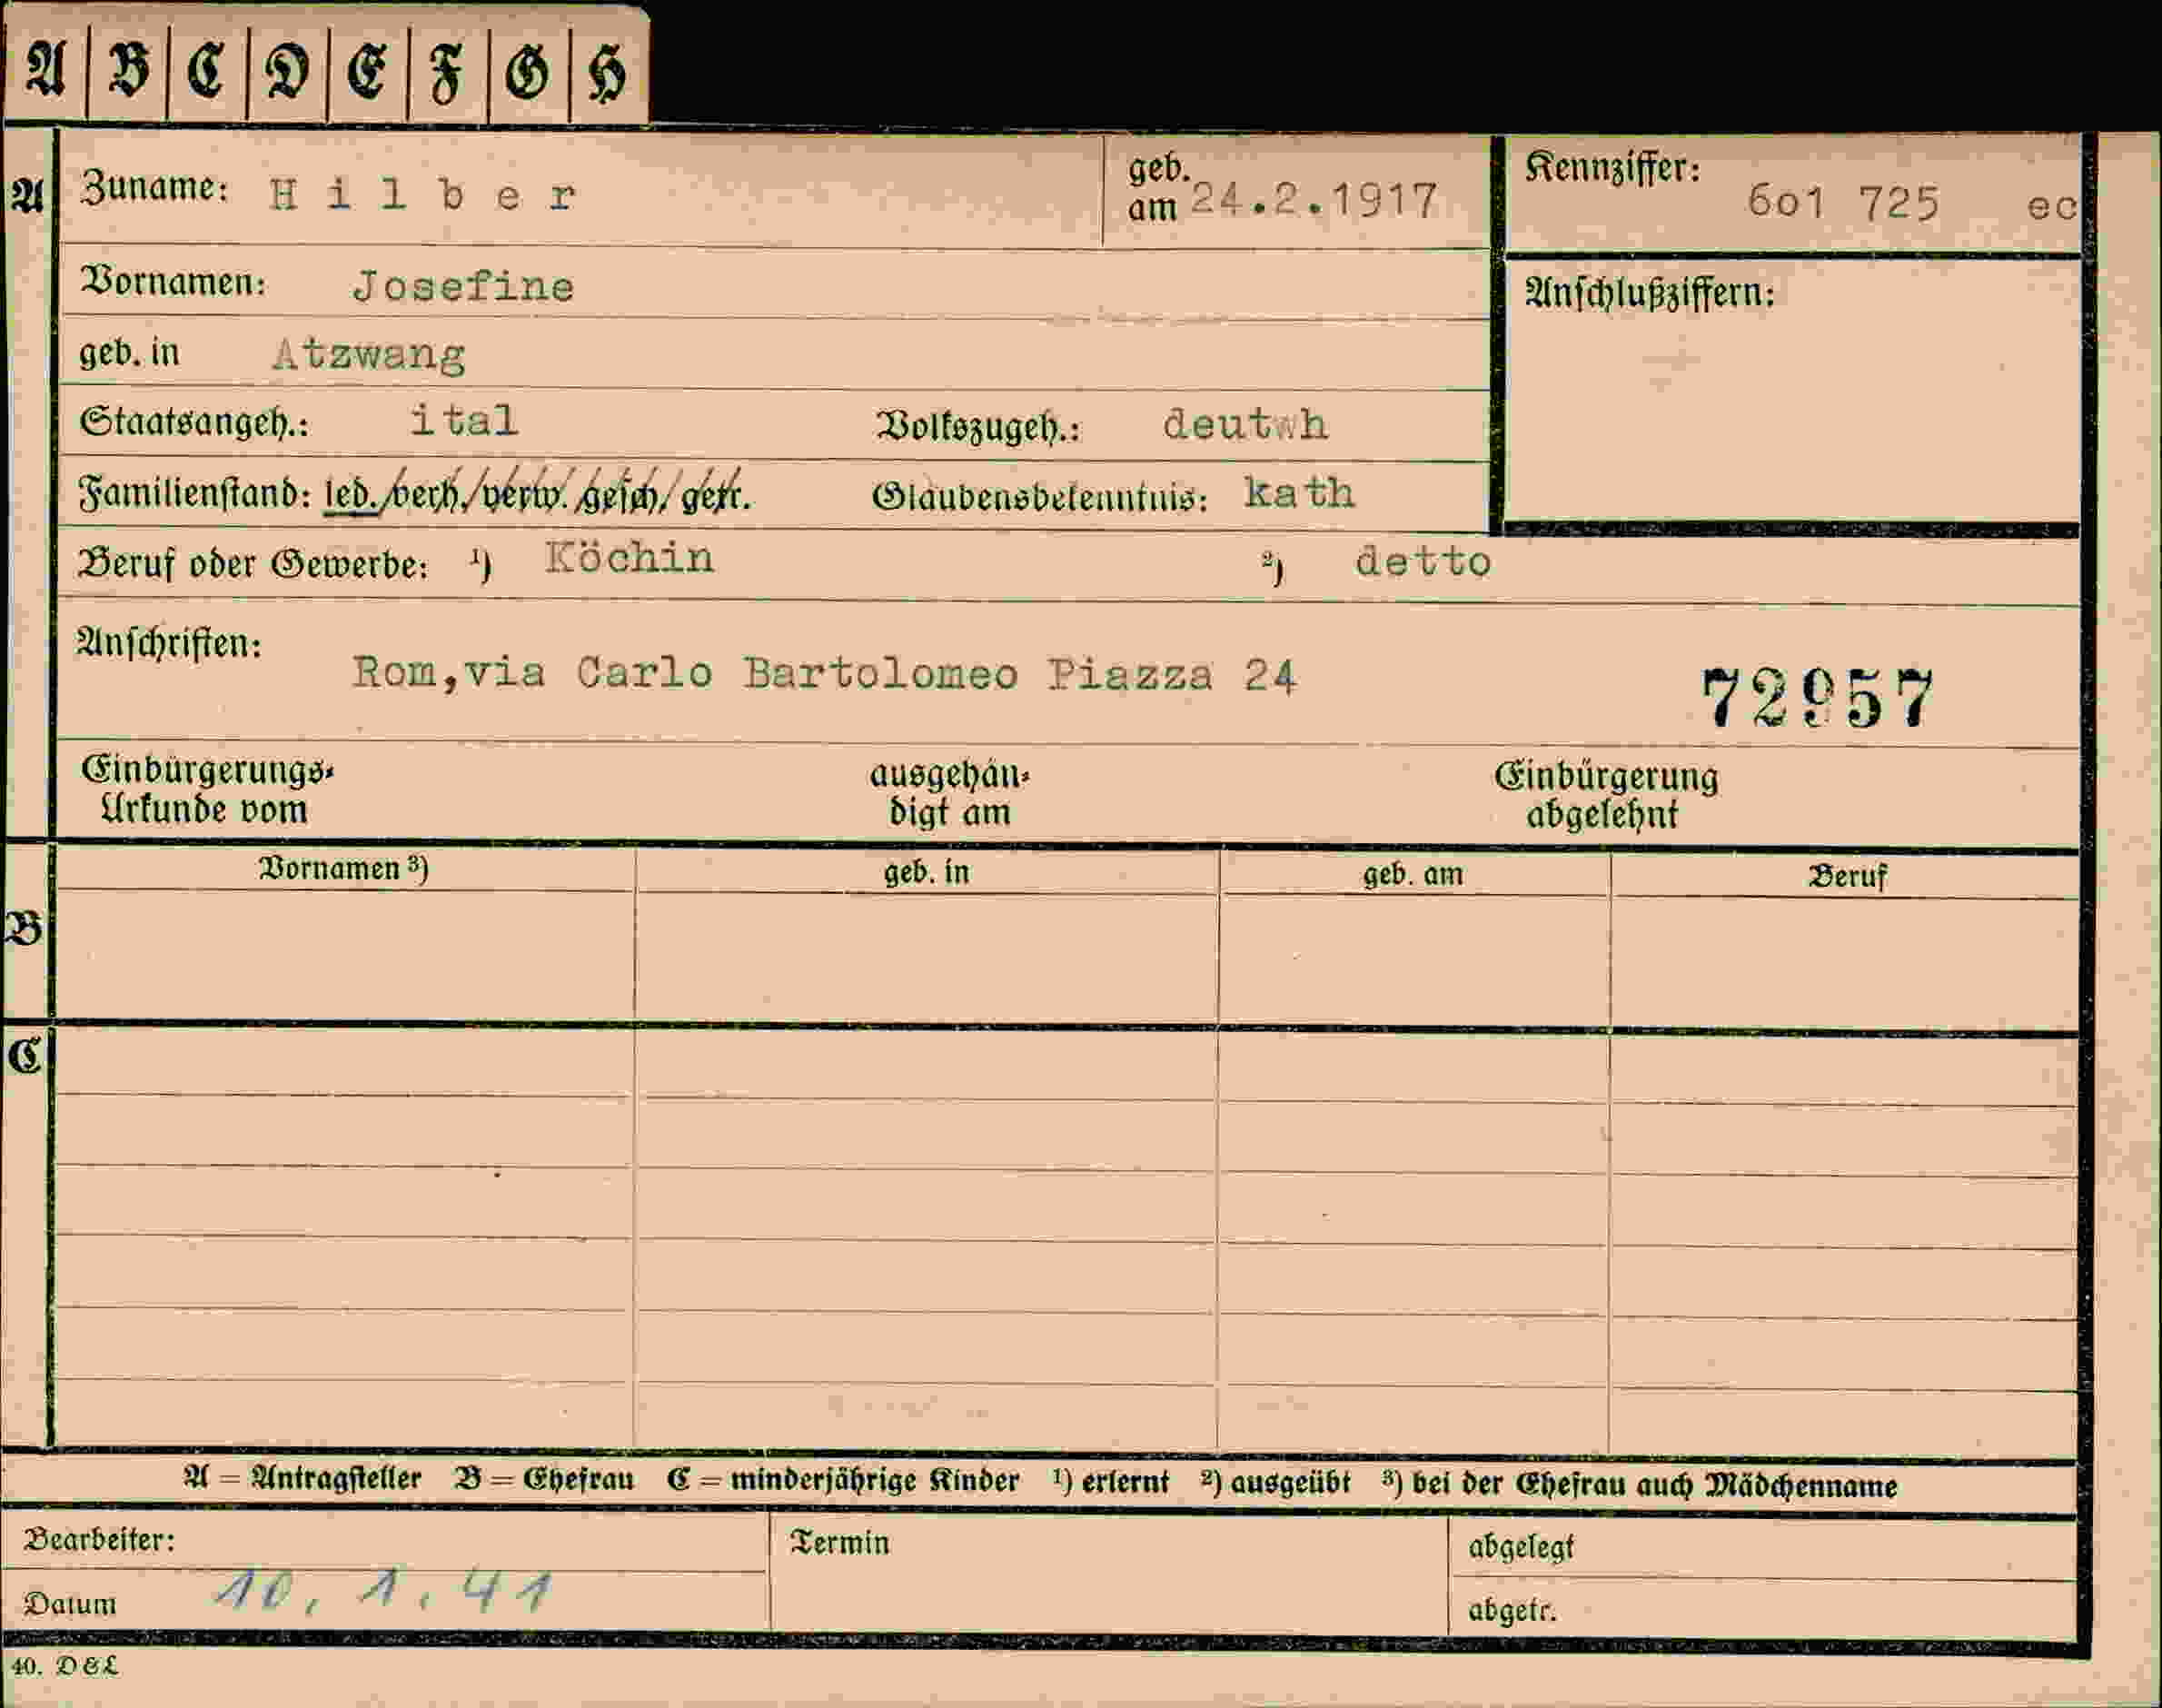 A B C D E F G H
A Zuname: Hilber geb. am 24.2.1917 Kennziffer: 6o1 725 ec
Vornamen: Josefine Anschlußziffern:
geb. in Atzwang
Staatsangeh.: ital Volkszugeh.: deutwh
Familienstand: led./verh./verw./gesch/getr. Glaubensbekenntnis: kath
Beruf oder Gewerbe: ¹) Köchin ²) detto
Anschriften:
Rom,via Carlo Bartolomeo Piazza 24 72957
Einbürgerungs- ausgehän- Einbürgerung
Urkunde vom digt am abgelehnt
Vornamen ³) geb. in geb. am Beruf
B
C
A = Antragsteller B = Ehefrau C = minderjährige Kinder ¹) erlernt ²) ausgeübt ³) bei der Ehefrau auch Mädchenname
Bearbeiter: Termin abgelegt
Datum 10. 1. 41 abgetr.
40. D & L